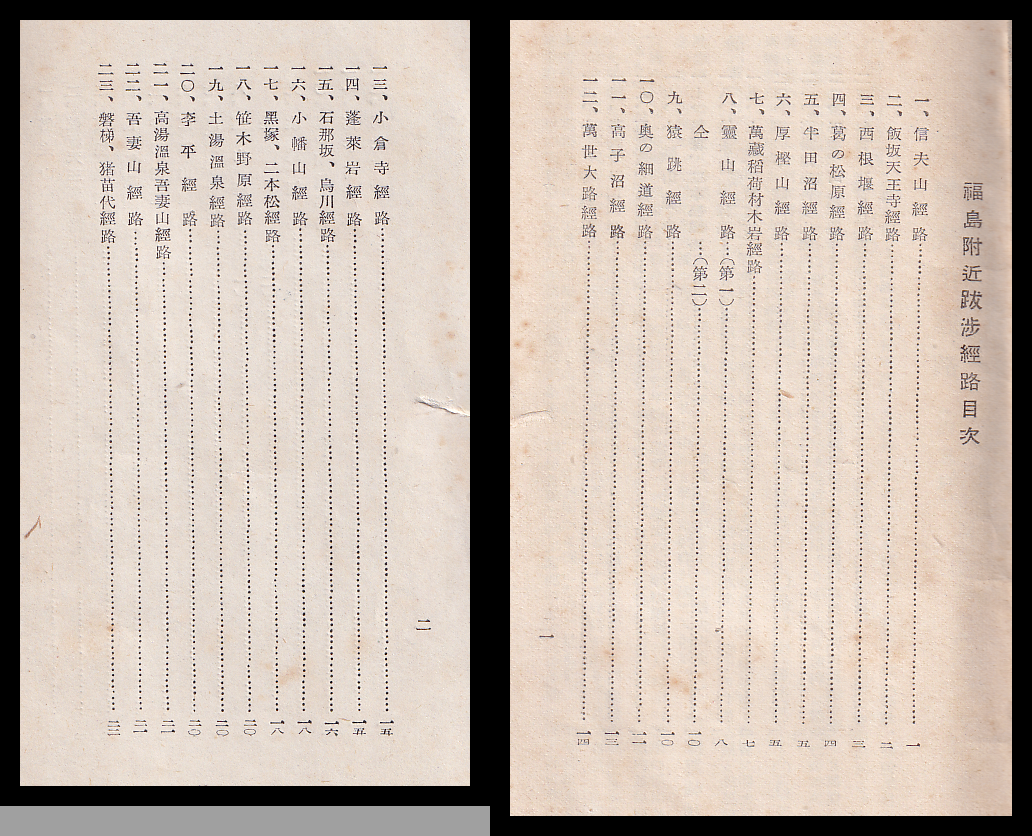 福島附近跋涉經路目次
一、信夫山經路…………一
二、飯坂天王寺經路…………二
三、西根堰經路…………三
四、葛の松原經路…………四
五、半田沼經路…………五
六、厚樫山經路…………五
七、萬藏稻荷材木岩經路…………七
八、靈山經路…(第一)…………八
仝…(第二)…………一〇
九、猿跳經路…………一〇
一〇、奥の細道經路…………一一
一一、高子沼經路…………一三
一二、萬世大路經路…………一四
一
一三、小倉寺經路…………一五
一四、蓬萊岩經路…………一五
一五、石那坂、烏川經路…………一六
一六、小幡山經路…………一八
一七、黑塚、二本松經路…………一八
一八、笹木野原經路…………二〇
一九、土湯溫泉經路…………二〇
二〇、李平經路…………二〇
二一、高湯溫泉吾妻山經路…………二一
二二、吾妻山經路…………二一
二三、磐梯、猪苗代經路…………二二
二